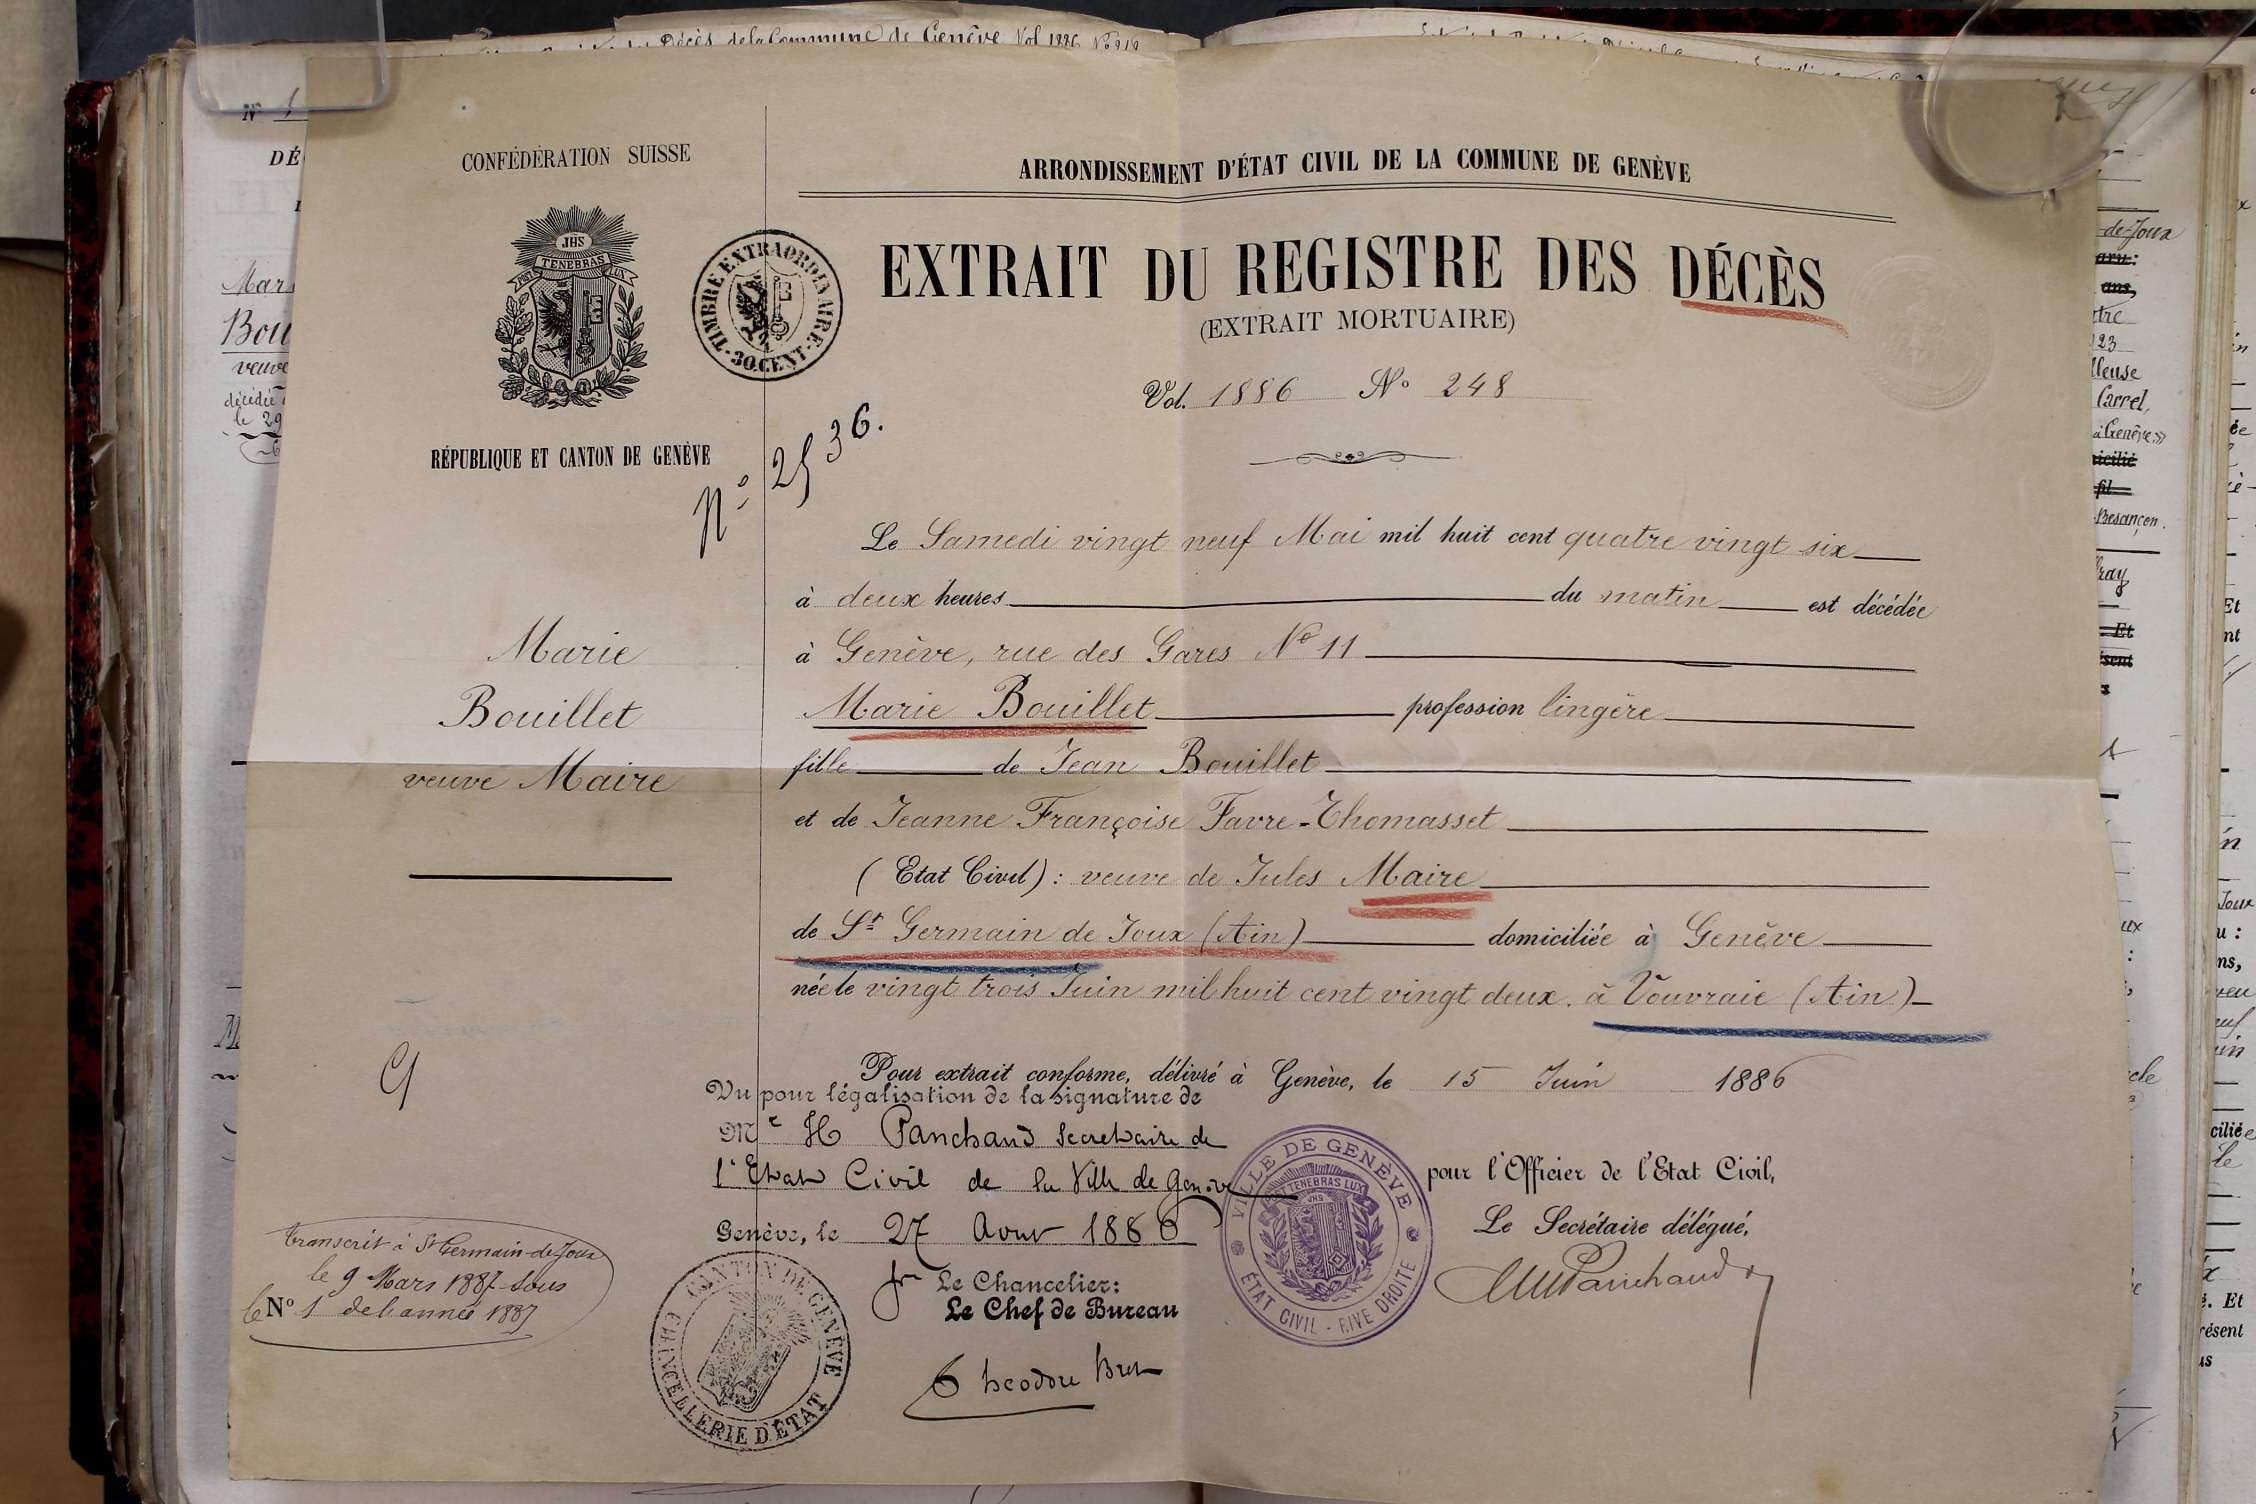 Décès de la Commune de Genève Vol 1886 N° 218
N°
DÉ
CONFÉDÉRATION SUISSE
JHS
POST TENEBRAS LUX
RÉPUBLIQUE ET CANTON DE GENÈVE
TIMBRE EXTRAORDINAIRE
30 CENT.
N° 2536.
ARRONDISSEMENT D'ÉTAT CIVIL DE LA COMMUNE DE GENÈVE
EXTRAIT DU REGISTRE DES DÉCÈS
(EXTRAIT MORTUAIRE)
Vol. 1886 N° 248
Le Samedi vingt neuf Mai mil huit cent quatre vingt six
à deux heures du matin est décédée
à Genève, rue des Gares N° 11
Marie Bouillet profession lingère
fille de Jean Bouillet
et de Jeanne Françoise Favre-Thomasset
(Etat Civil) : veuve de Jules Maire
de St Germain de Joux (Ain) domiciliée à Genève
née le vingt trois Juin mil huit cent vingt deux. à Vouvraie (Ain)
Marie
Bouillet
veuve Maire
Pour extrait conforme, délivré à Genève, le 15 Juin 1886
Vu pour légalisation de la signature de
Mr H Panchaud Secretaire de
l'Etat Civil de la Ville de Genève
Genève, le 27 Aout 1886
pr Le Chancelier:
Le Chef de Bureau
Theodore Bret
CANTON DE GENÈVE
CHANCELLERIE D'ÉTAT
VILLE DE GENÈVE
POST TENEBRAS LUX
JHS
ÉTAT CIVIL - RIVE DROITE
pour l'Officier de l'Etat Civil,
Le Secrétaire délégué,
Panchaud
transcrit à St Germain-de-Joux
le 9 Mars 1887 sous
le N° 1 de l'année 1887
Mar
Bou
veuve
décédée
le 29
-de-Joux
ans,
23
Carrel,
à Genève
Besançon.
Gray
Et